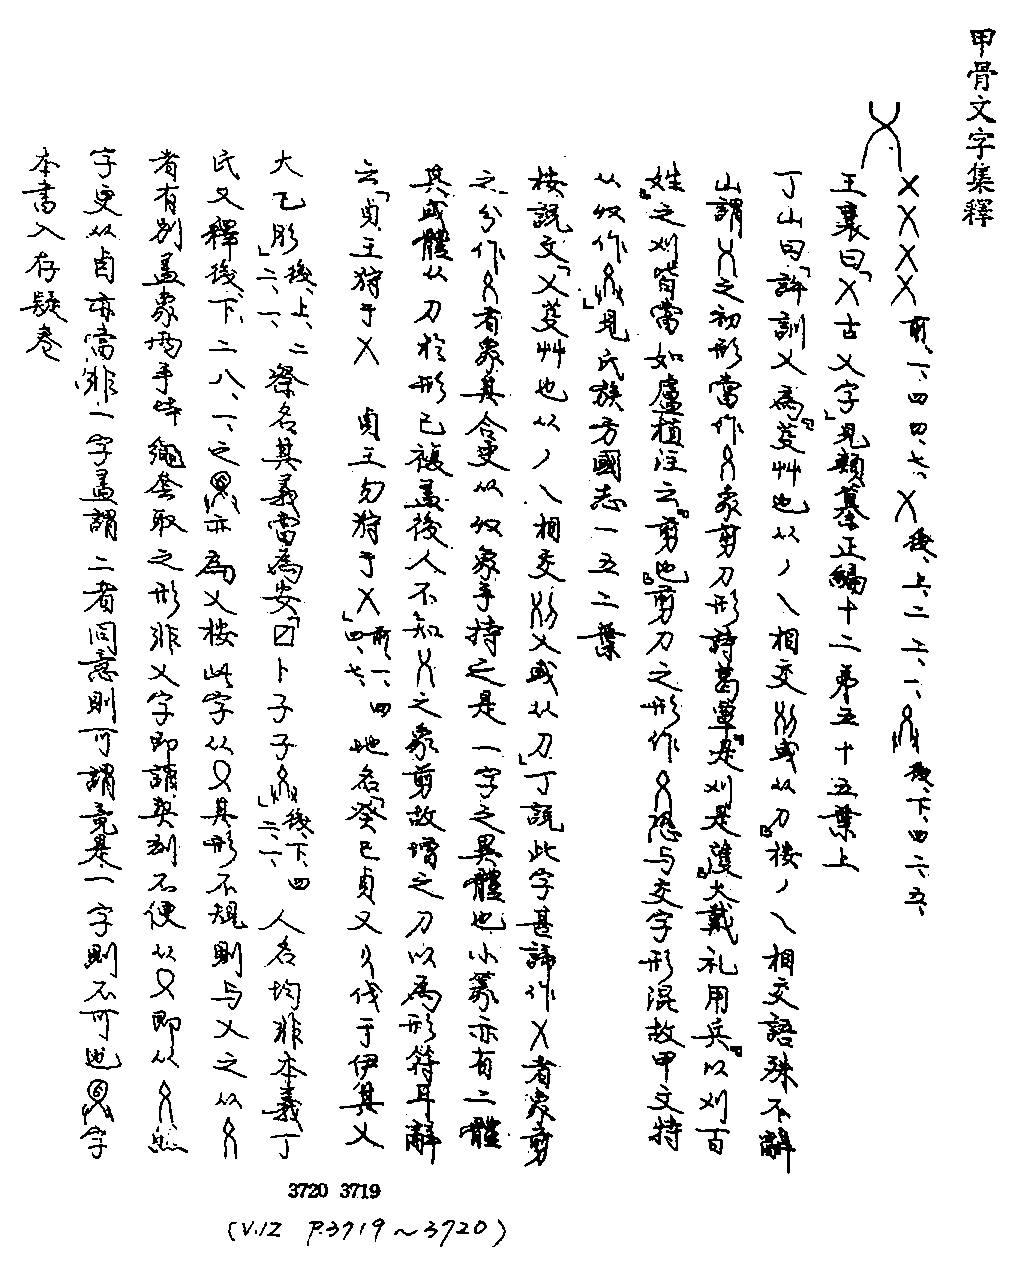 甲骨文字集釋
乂
乂 乂 乂 乂 前、一、四四、七、 乂 後、上、二二、一、 後、下、四二、五、
王襄曰「乂古乂字」見類纂正編十二第五十五葉上
丁山曰「許訓乂為『芟艸也从丿乀相交乂或从刀』按丿乀相交語殊不辭
山謂乂之初形當作 象剪刀形詩葛覃『是刈是濩』大戴礼用兵『以刈百
姓』之刈皆當如盧植注云『剪也』剪刀之形作 恐与交字形混故甲文特
从収作 」見氏族方國志一五二葉
按說文「乂芟艸也从丿乀相交刈乂或从刀」丁說此字甚諦作乂者象剪
之分作 者象其合更从収象手持之是一字之異體也小篆亦有二體
其或體从刀於形已複蓋後人不知乂之象剪故增之刀以為形符耳辭
云「貞王狩于乂 貞王勿狩于乂」前、一、四四、七、地名「癸巳貞又久伐于伊其乂
大乙肜」後、上、二二、一、祭名其義當為安「囗卜子子 」後、下、四二、一、人名均非本義丁
氏又釋後、下、二八、一、之 亦為乂按此字从 其形不規則与乂之从
者有別蓋象兩手持繩套取之形非乂字即謂契刻不便从 即从 然
字更从卣亦當非一字蓋謂二者同意則可謂竟是一字則不可也 字
本書入存疑卷
3720 3719
(V.12 P.3719～3720)